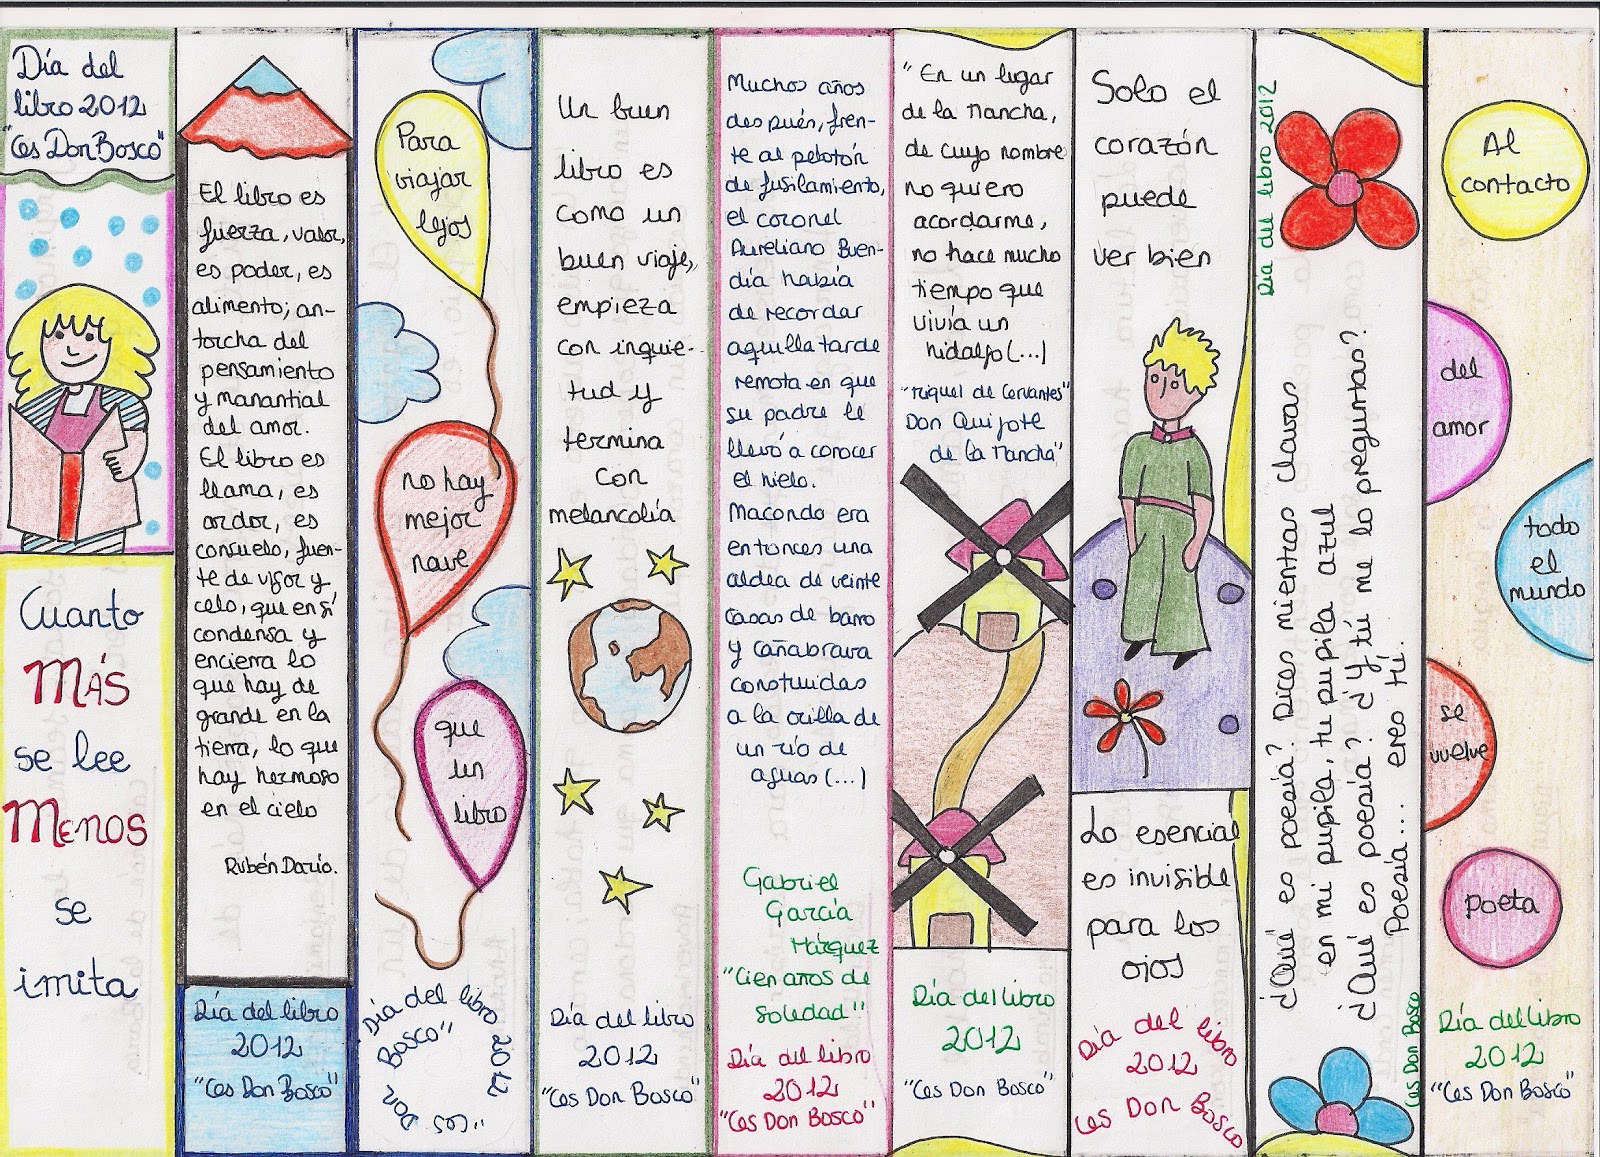 Día del
libro 2012
"Ces Don Bosco"
Cuanto
MÁS
se lee
MENOS
se
imita
El libro es
fuerza, valor,
es poder, es
alimento; an-
torcha del
pensamiento
y manantial
del amor.
El libro es
llama, es
ardor, es
consuelo, fuen-
te de vigor y
celo, que en sí
condensa y
encierra lo
que hay de
grande en la
tierra, lo que
hay hermoso
en el cielo
Rubén Darío.
Día del libro
2012
"Ces Don Bosco"
Para
viajar
lejos
no hay
mejor
nave
que
un
libro
Día del libro 2012
"Ces Don Bosco"
Un buen
libro es
como un
buen viaje,
empieza
con inquie-
tud y
termina
con
melancolía
Día del libro
2012
"Ces Don Bosco"
Muchos años
después, fren-
te al pelotón
de fusilamiento,
el coronel
Aureliano Buen-
día había
de recordar
aquella tarde
remota en que
su padre le
llevó a conocer
el hielo.
Macondo era
entonces una
aldea de veinte
casas de barro
y cañabrava
construidas
a la orilla de
un río de
aguas (...)
Gabriel
García
Márquez
"Cien años de
Soledad"
Día del libro
2012
"Ces Don Bosco"
"En un lugar
de la Mancha,
de cuyo nombre
no quiero
acordarme,
no hace mucho
tiempo que
vivía un
hidalgo (...)
"Miguel de Cervantes"
Don Quijote
de la Mancha"
Día del libro
2012
"Ces Don Bosco"
Solo el
corazón
puede
ver bien
Lo esencial
es invisible
para los
ojos
Día del libro
2012
Ces Don Bosco
Día del libro 2012
¿Qué es poesía? Dices mientras clavas
en mi pupila, tu pupila azul
¿Qué es poesía? ¿Y tú me lo preguntas?
Poesía... eres tú.
Ces Don Bosco
Al
contacto
del
amor
todo
el
mundo
se
vuelve
poeta
Día del libro
2012
"Ces Don Bosco"